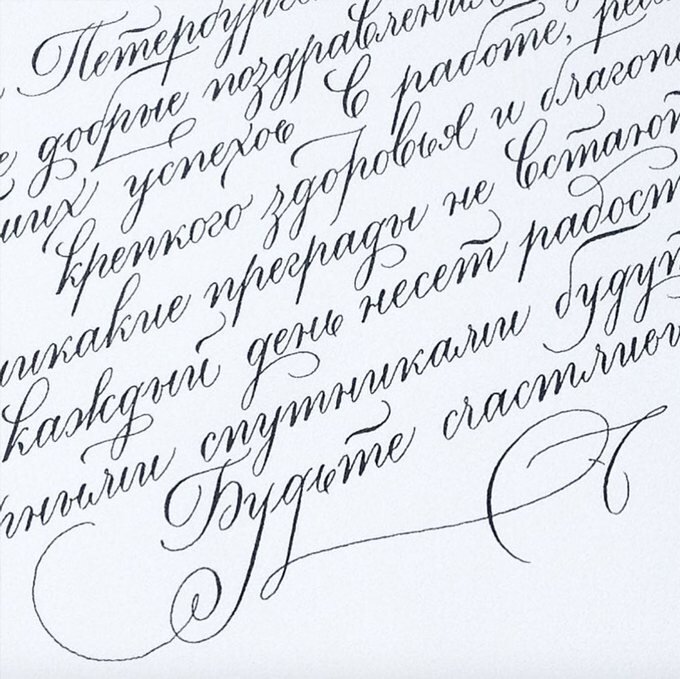 Петербур
добрые поздравлени
ших успехов в работе,
крепкого здоровья и благопо
никакие преграды не встают
каждый день несет радост
ными спутниками будут
Будьте счастлив